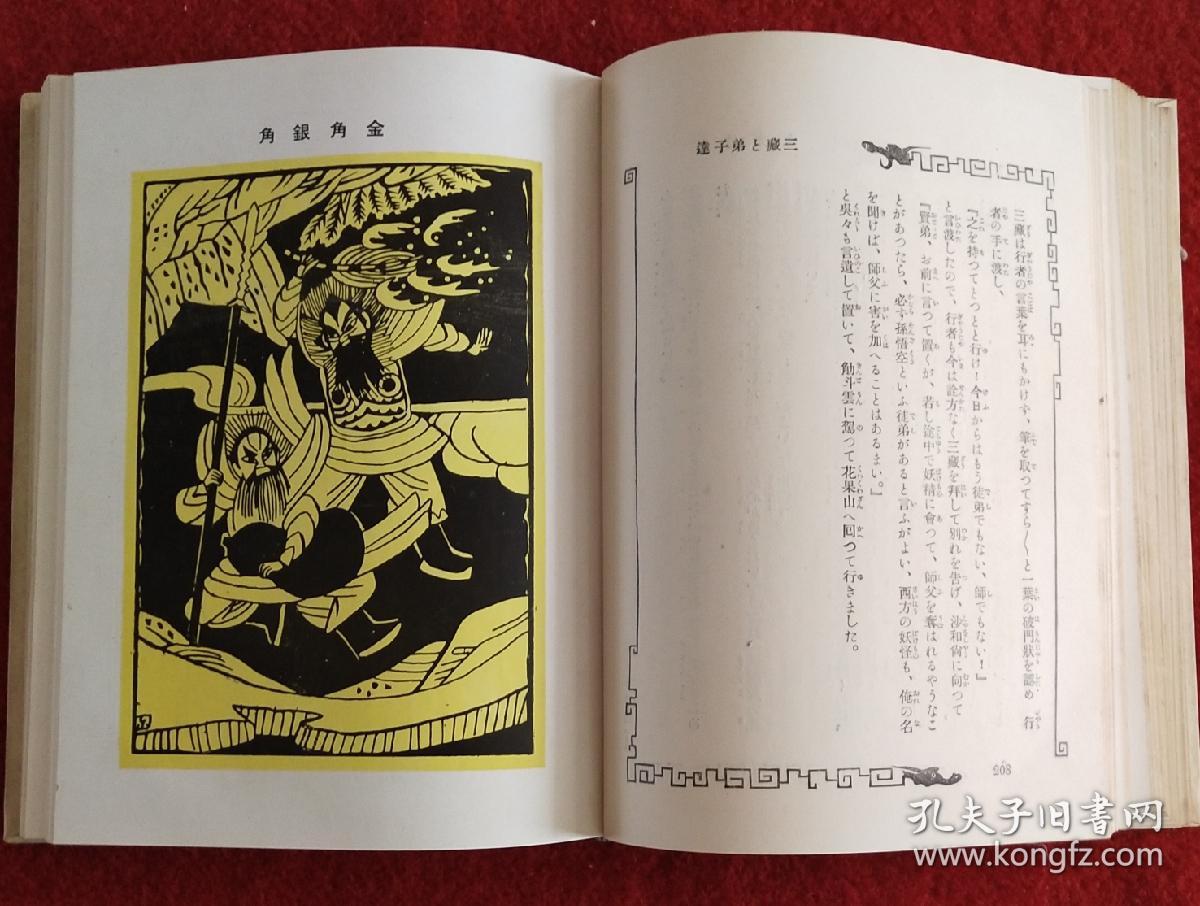 三藏と弟子達
三藏は行者の言葉を耳にもかけず、筆を取つてすら〳〵と一葉の破門狀を認め 行
者の手に渡し、
『之を持つてとつとと行け！今日からはもう徒弟でもない、師でもない！』
と言渡したので、行者も今は詮方なく三藏を拜して別れを告げ、沙和尙に向つて
『賢弟、お前に言つて置くが、若し途中で妖精に會つて、師父を奪はれるやうなこ
とがあつたら、必ず孫悟空といふ徒弟があると言ふがよい、西方の妖怪も、俺の名
を聞けば、師父に害を加へることはあるまい。』
と吳々も言遺して置いて、觔斗雲に駕つて花果山へ囘つて行きました。
208
金角銀角
孔夫子旧书网
www.kongfz.com